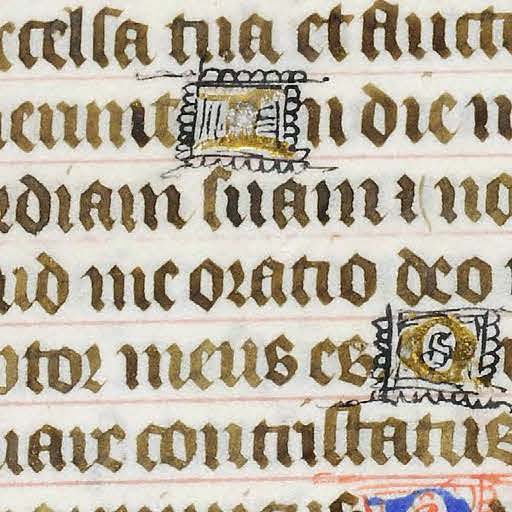 xcelsa tua et fluctu
ierunt In die m
rdiam suam ⁊ no
ud me oratio deo
ptor meus es Q
uare contristatus